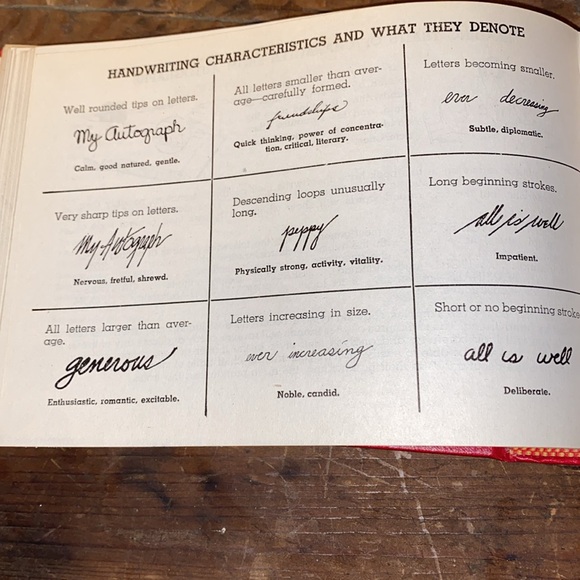 HANDWRITING CHARACTERISTICS AND WHAT THEY DENOTE
Well rounded tips on letters.
My Autograph
Calm, good natured, gentle.
All letters smaller than aver-
age—carefully formed.
friendships
Quick thinking, power of concentra-
tion, critical, literary.
Letters becoming smaller.
ever decreasing
Subtle, diplomatic.
Very sharp tips on letters.
My Autograph
Nervous, fretful, shrewd.
Descending loops unusually
long.
peppy
Physically strong, activity, vitality.
Long beginning strokes.
all is well
Impatient.
All letters larger than aver-
age.
generous
Enthusiastic, romantic, excitable.
Letters increasing in size.
ever increasing
Noble, candid.
Short or no beginning stroke
all is well
Deliberate.